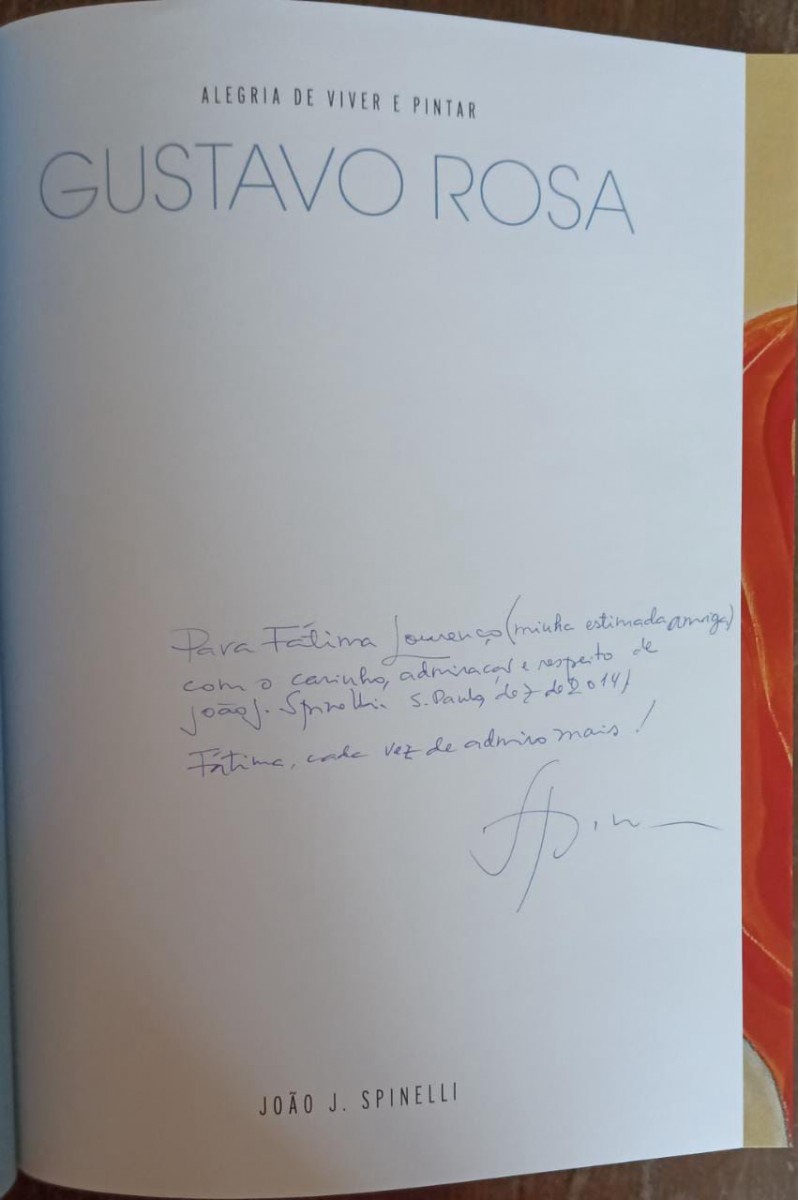 ALEGRIA DE VIVER E PINTAR
GUSTAVO ROSA
Para Fátima Lourenço (minha estimada amiga)
com o carinho, admiração e respeito de
João J. Spinelli. S. Paulo, dez de 2014
Fátima, cada vez de admiro mais!
JOÃO J. SPINELLI